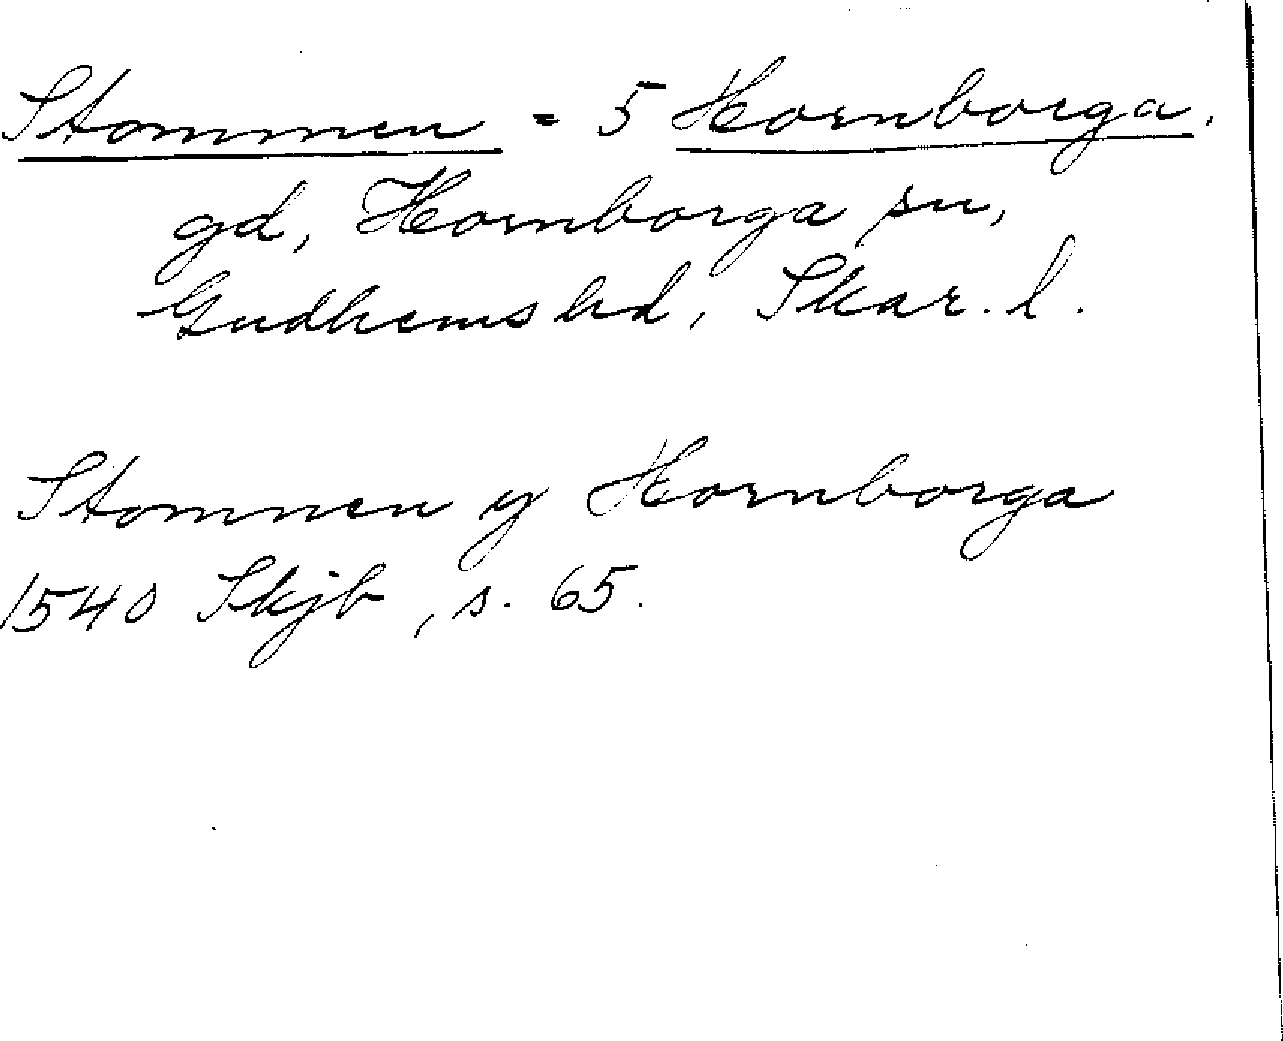 Stommen = 5 Hornborga.
gd, Hornborga sn,
Gudhems hd, Skar. l.
Stommen y Hornborga
1540 Skjb, s. 65.